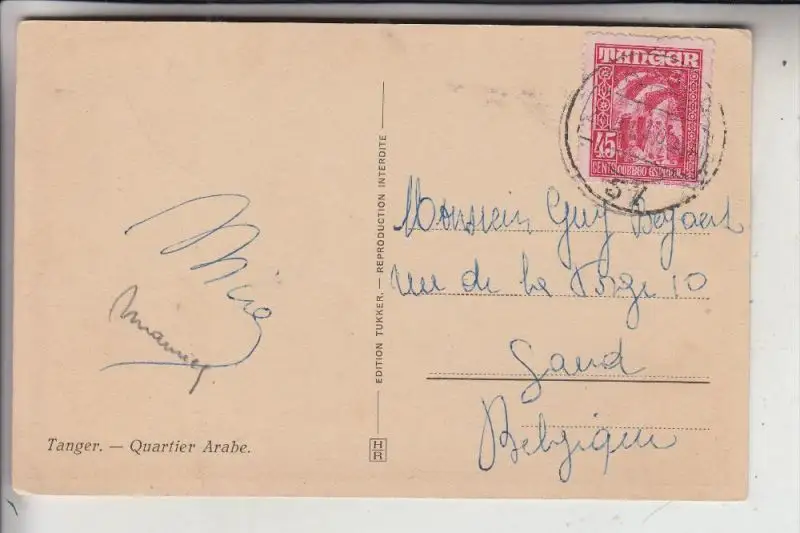 TANGER
45
CENTS CORREO ESPAÑOL
Monsieur Guy Begaert
rue de la Forge 10
Gand
Belgique
Mia
Maurice
EDITION TUKKER. — REPRODUCTION INTERDITE
HR
Tanger. — Quartier Arabe.